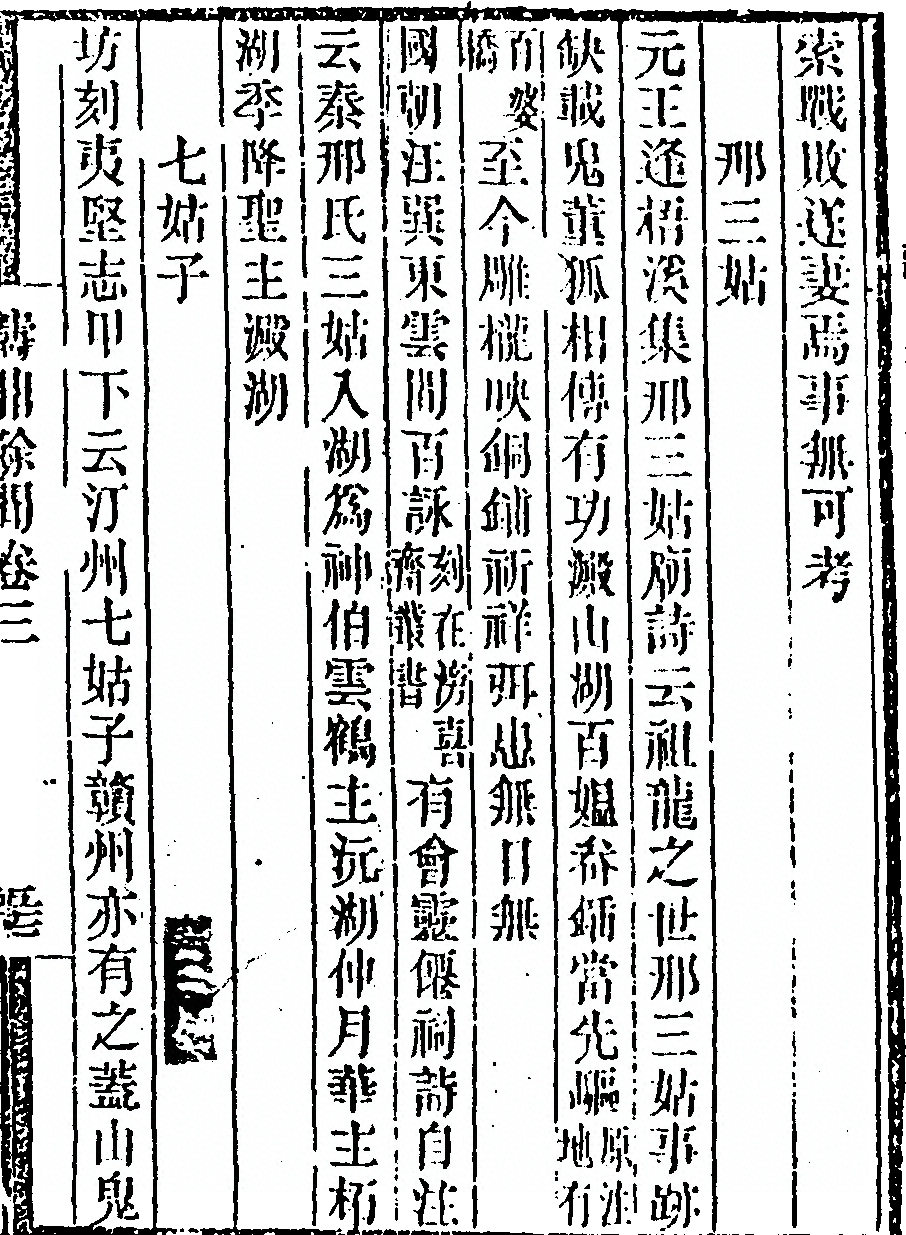 索戰敗逆妻焉事無可考
邢三姑
元王逢梧溪集邢三姑廟詩云祖龍之世邢三姑事跡
缺載鬼董狐相傳有功澱山湖百媼喬鏑當先驅原注地有
百婆橋至今雕櫳映銅鋪祈祥弭患無日無
國朝汪巽東雲間百詠刻在滂喜齋叢書有會靈僊祠詩自注
云秦邢氏三姑入湖為神伯雲鶴主沅湖仲月華主柘
湖季降聖主澱湖
七姑子
坊刻夷堅志甲下云汀州七姑子贛州亦有之蓋山鬼
餘聞卷三